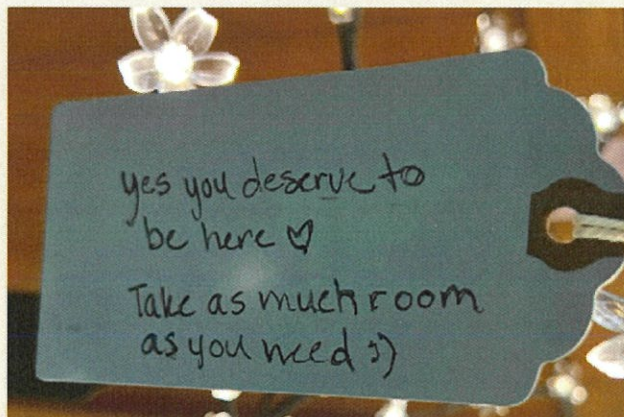 yes you deserve to
be here ♡
Take as much room
as you need :)